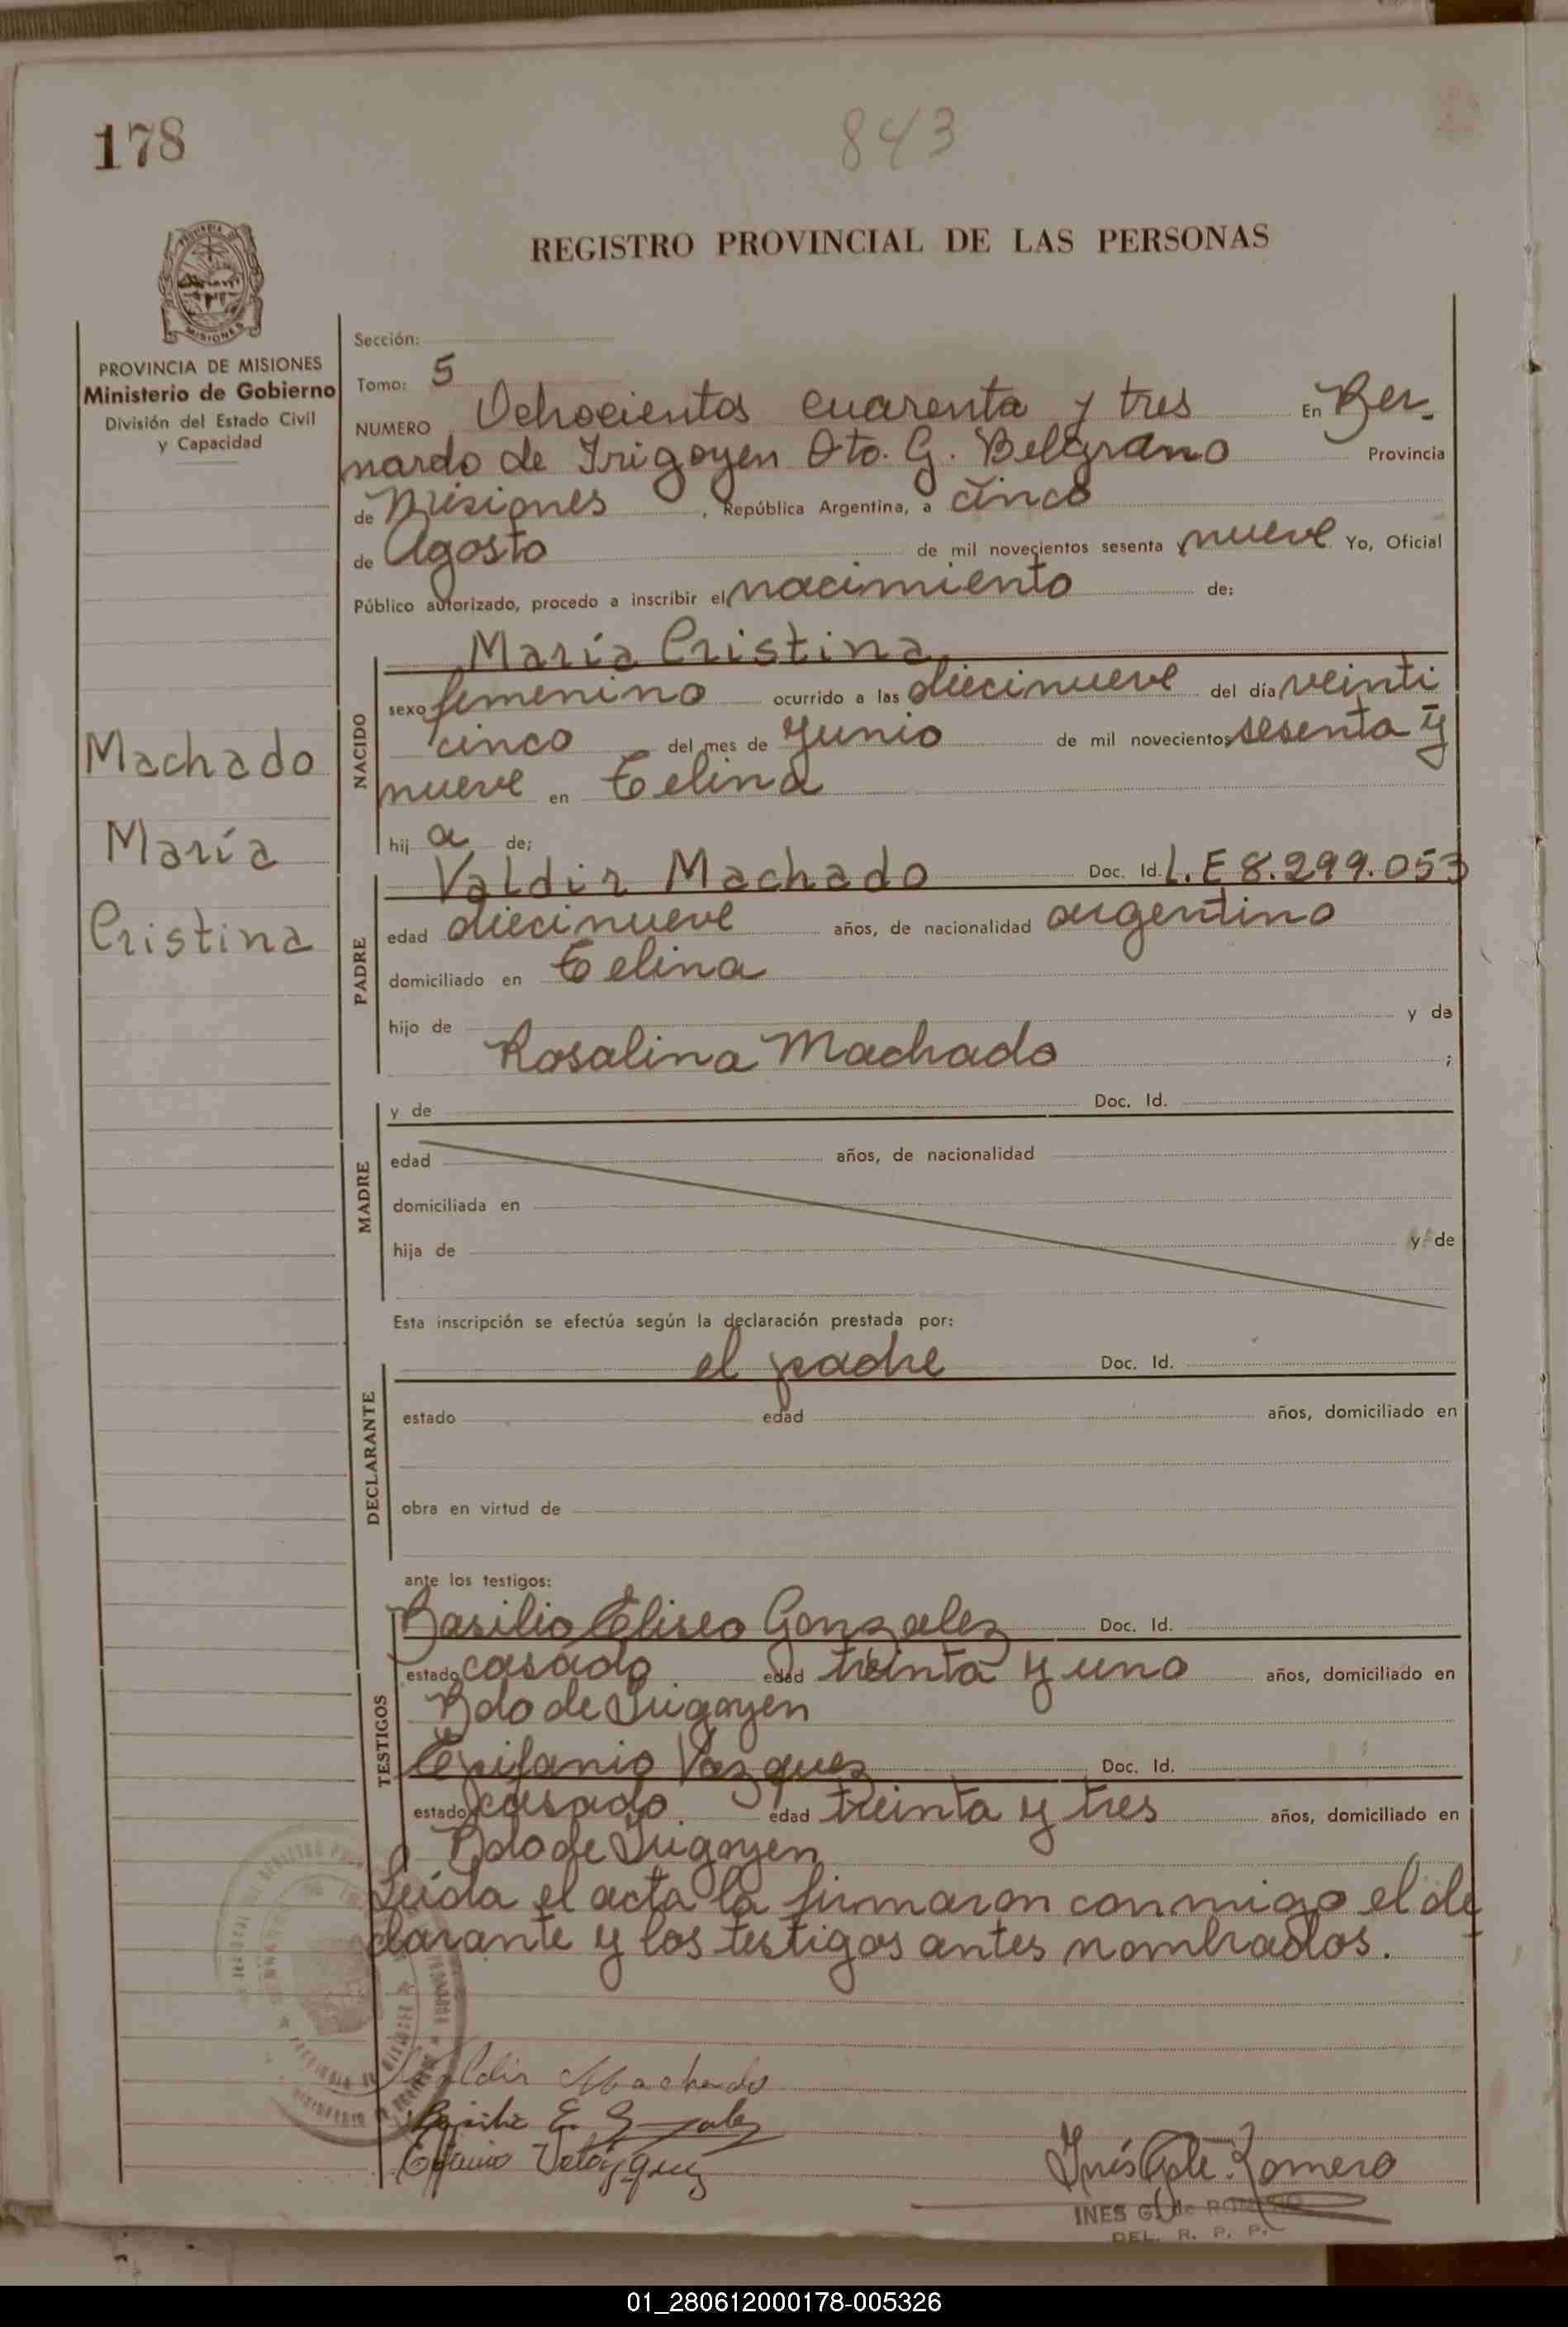 178
843
REGISTRO PROVINCIAL DE LAS PERSONAS
PROVINCIA
MISIONES
PROVINCIA DE MISIONES
Ministerio de Gobierno
División del Estado Civil
y Capacidad
Machado
María
Cristina
Sección:
Tomo: 5
NUMERO Ochocientos cuarenta y tres En Ber-
nardo de Irigoyen Dto. G. Belgrano Provincia
de Misiones, República Argentina, a cinco
de Agosto de mil novecientos sesenta y nueve Yo, Oficial
Público autorizado, procedo a inscribir el nacimiento de:
NACIDO
María Cristina
sexo femenino ocurrido a las diecinueve del día veinti
cinco del mes de Junio de mil novecientos sesenta y
nueve en Celina
hij a de;
PADRE
Valdir Machado Doc. Id. L.E 8.299.053
edad diecinueve años, de nacionalidad argentino
domiciliado en Celina
hijo de y de
Rosalina Machado ;
MADRE
y de Doc. Id.
edad años, de nacionalidad
domiciliada en
hija de y de
Esta inscripción se efectúa según la declaración prestada por:
DECLARANTE
el padre Doc. Id.
estado edad años, domiciliado en
obra en virtud de
ante los testigos:
TESTIGOS
Basilio Eliseo Gonzalez Doc. Id.
estado casado edad treinta y uno años, domiciliado en
Bdo de Irigoyen
Epifanio Vazquez Doc. Id.
estado casado edad treinta y tres años, domiciliado en
Bdo de Irigoyen
Leída el acta la firmaron conmigo el de
clarante y los testigos antes nombrados.
Valdir Machado
Basilio E. Gonzalez
Inés G. de Romero
INES G. de ROMERO
DEL. R. P. P.
01_280612000178-005326